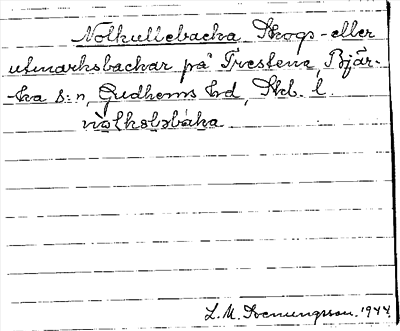 Nolkullebacka Skogs- eller
utmarksbackar på Trestena, Bjär-
ka s:n, Gudhems hd, Skb. l.
L. M. Svenungsson. 1944